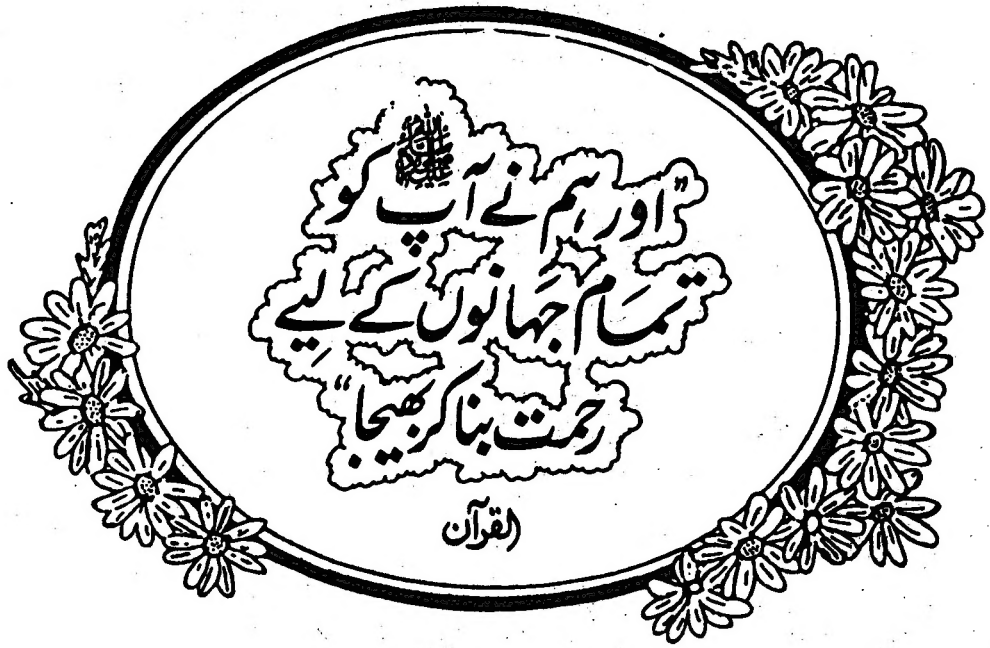 "اور ہم نے آپ صلی اللہ علیہ وسلم کو
تمام جہانوں کے لیے
رحمت بنا کر بھیجا"
القرآن